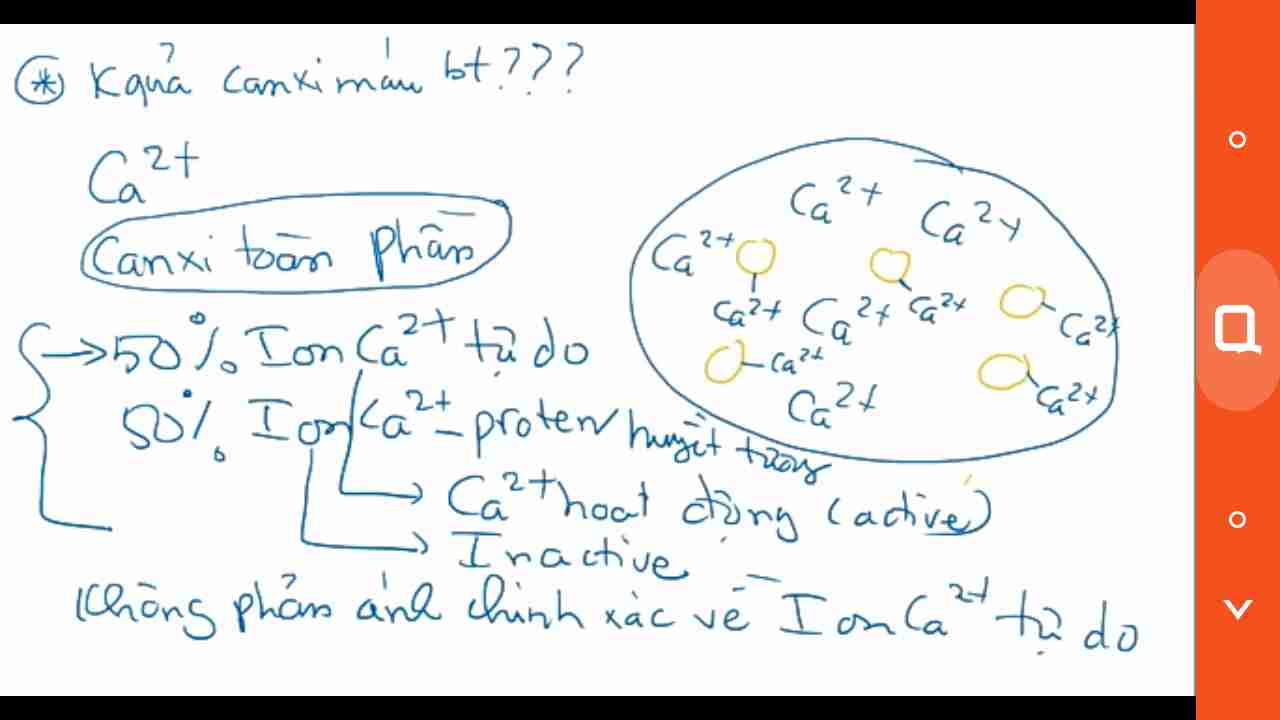 * Kquả canxi máu bt???
Ca2+
Canxi toàn phần
→ 50% Ion Ca2+ tự do
50% Ion Ca2+ - protein huyết tương
→ Ca2+ hoạt động (active)
→ Inactive
Không phản ánh chính xác về Ion Ca2+ tự do
Ca2+ Ca2+
Ca2+
Ca2+ Ca2+ Ca2+ Ca2+
Ca2+
Ca2+ Ca2+